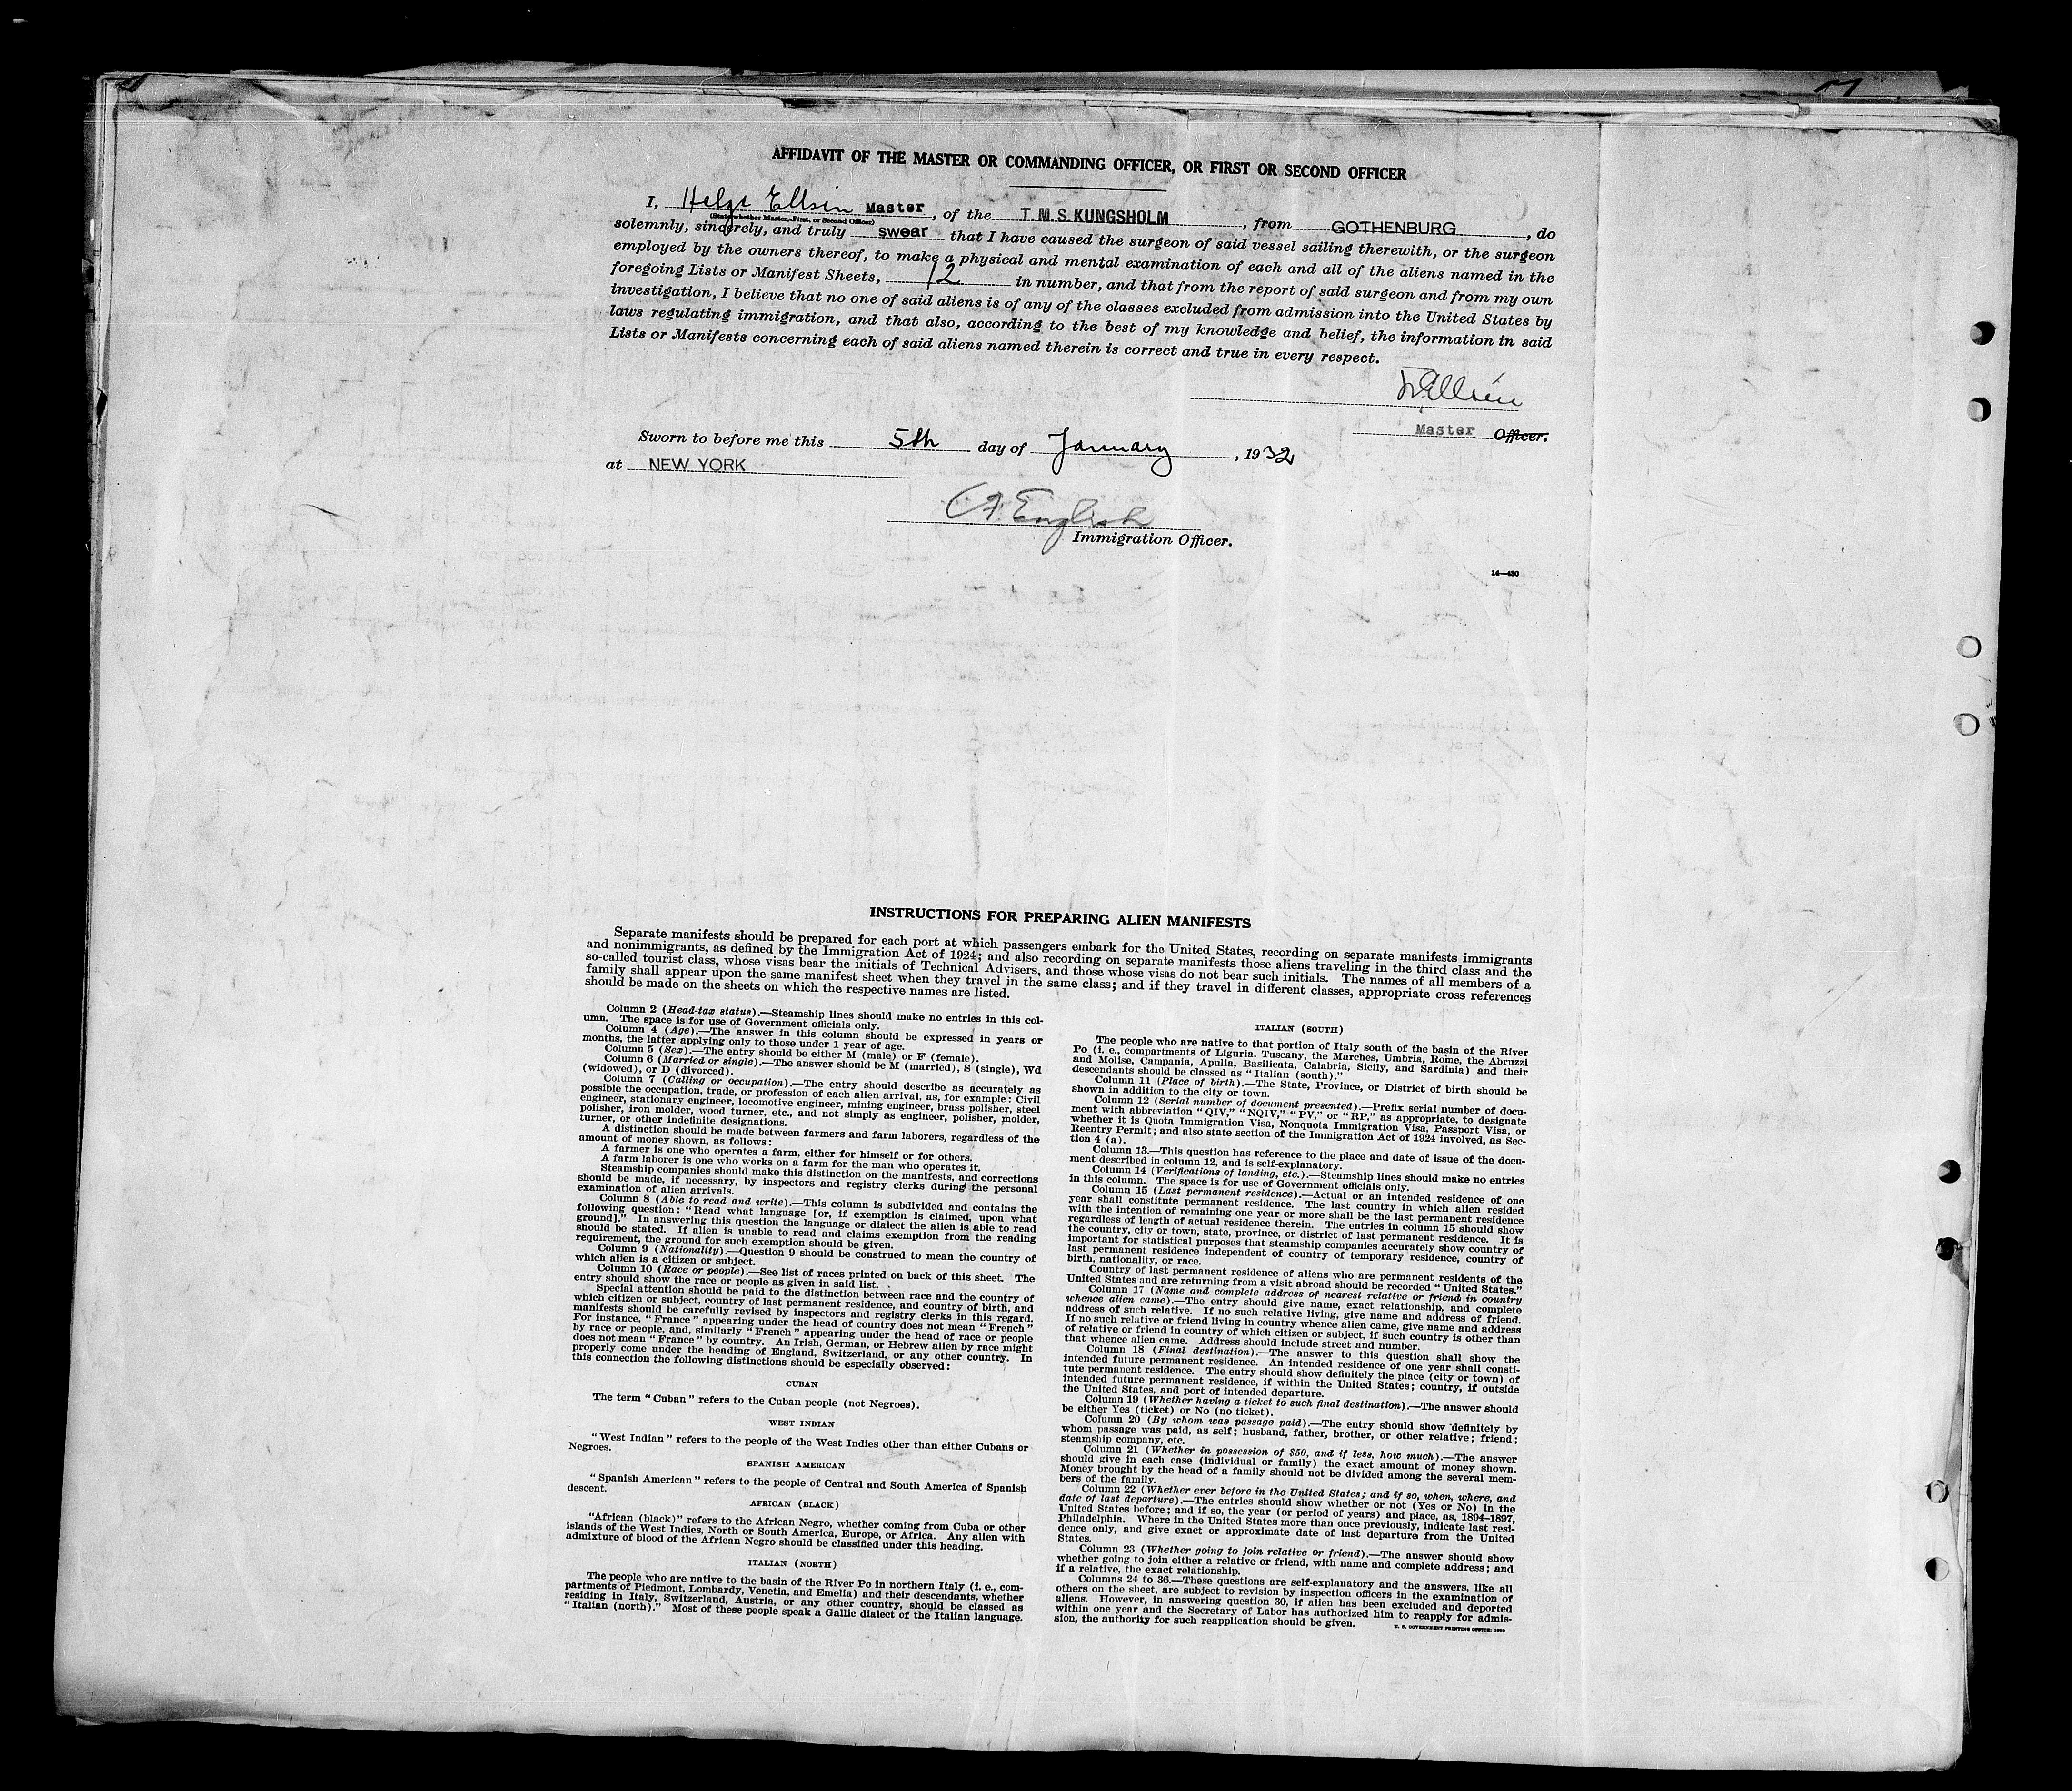 AFFIDAVIT OF THE MASTER OR COMMANDING OFFICER, OR FIRST OR SECOND OFFICER
I, Helge Ellsin Master, of the T. M. S. KUNGSHOLM, from GOTHENBURG, do
(State whether Master, First, or Second Officer)
solemnly, sincerely, and truly swear that I have caused the surgeon of said vessel sailing therewith, or the surgeon
employed by the owners thereof, to make a physical and mental examination of each and all of the aliens named in the
foregoing Lists or Manifest Sheets, 12 in number, and that from the report of said surgeon and from my own
investigation, I believe that no one of said aliens is of any of the classes excluded from admission into the United States by
laws regulating immigration, and that also, according to the best of my knowledge and belief, the information in said
Lists or Manifests concerning each of said aliens named therein is correct and true in every respect.
Master Officer.
Sworn to before me this 5th day of January, 1932
at NEW YORK
English
Immigration Officer.
14—430
INSTRUCTIONS FOR PREPARING ALIEN MANIFESTS
Separate manifests should be prepared for each port at which passengers embark for the United States, recording on separate manifests immigrants
and nonimmigrants, as defined by the Immigration Act of 1924; and also recording on separate manifests those aliens traveling in the third class and the
so-called tourist class, whose visas bear the initials of Technical Advisers, and those whose visas do not bear such initials. The names of all members of a
family shall appear upon the same manifest sheet when they travel in the same class; and if they travel in different classes, appropriate cross references
should be made on the sheets on which the respective names are listed.
Column 2 (Head-tax status).—Steamship lines should make no entries in this col-
umn. The space is for use of Government officials only.
Column 4 (Age).—The answer in this column should be expressed in years or
months, the latter applying only to those under 1 year of age.
Column 5 (Sex).—The entry should be either M (male) or F (female).
Column 6 (Married or single).—The answer should be M (married), S (single), Wd
(widowed), or D (divorced).
Column 7 (Calling or occupation).—The entry should describe as accurately as
possible the occupation, trade, or profession of each alien arrival, as, for example: Civil
engineer, stationary engineer, locomotive engineer, mining engineer, brass polisher, steel
polisher, iron molder, wood turner, etc., and not simply as engineer, polisher, molder,
turner, or other indefinite designations.
A distinction should be made between farmers and farm laborers, regardless of the
amount of money shown, as follows:
A farmer is one who operates a farm, either for himself or for others.
A farm laborer is one who works on a farm for the man who operates it.
Steamship companies should make this distinction on the manifests, and corrections
should be made, if necessary, by inspectors and registry clerks during the personal
examination of alien arrivals.
Column 8 (Able to read and write).—This column is subdivided and contains the
following question: "Read what language [or, if exemption is claimed, upon what
ground]." In answering this question the language or dialect the alien is able to read
should be stated. If alien is unable to read and claims exemption from the reading
requirement, the ground for such exemption should be given.
Column 9 (Nationality).—Question 9 should be construed to mean the country of
which alien is a citizen or subject.
Column 10 (Race or people).—See list of races printed on back of this sheet. The
entry should show the race or people as given in said list.
Special attention should be paid to the distinction between race and the country of
which citizen or subject, country of last permanent residence, and country of birth, and
manifests should be carefully revised by inspectors and registry clerks in this regard.
For instance, "France" appearing under the head of country does not mean "French"
by race or people, and, similarly "French" appearing under the head of race or people
does not mean "France" by country. An Irish, German, or Hebrew alien by race might
properly come under the heading of England, Switzerland, or any other country. In
this connection the following distinctions should be especially observed:
CUBAN
The term "Cuban" refers to the Cuban people (not Negroes).
WEST INDIAN
"West Indian" refers to the people of the West Indies other than either Cubans or
Negroes.
SPANISH AMERICAN
"Spanish American" refers to the people of Central and South America of Spanish
descent.
AFRICAN (BLACK)
"African (black)" refers to the African Negro, whether coming from Cuba or other
islands of the West Indies, North or South America, Europe, or Africa. Any alien with
admixture of blood of the African Negro should be classified under this heading.
ITALIAN (NORTH)
The people who are native to the basin of the River Po in northern Italy (i. e., com-
partments of Piedmont, Lombardy, Venetia, and Emelia) and their descendants, whether
residing in Italy, Switzerland, Austria, or any other country, should be classed as
"Italian (north)." Most of these people speak a Gallic dialect of the Italian language.
ITALIAN (SOUTH)
The people who are native to that portion of Italy south of the basin of the River
Po (i. e., compartments of Liguria, Tuscany, the Marches, Umbria, Rome, the Abruzzi
and Molise, Campania, Apulia, Basilicata, Calabria, Sicily, and Sardinia) and their
descendants should be classed as "Italian (south)."
Column 11 (Place of birth).—The State, Province, or District of birth should be
shown in addition to the city or town.
Column 12 (Serial number of document presented).—Prefix serial number of docu-
ment with abbreviation "QIV," "NQIV," "PV," or "RP," as appropriate, to designate
whether it is Quota Immigration Visa, Nonquota Immigration Visa, Passport Visa, or
Reentry Permit; and also state section of the Immigration Act of 1924 involved, as Sec-
tion 4 (a).
Column 13.—This question has reference to the place and date of issue of the docu-
ment described in column 12, and is self-explanatory.
Column 14 (Verifications of landing, etc.).—Steamship lines should make no entries
in this column. The space is for use of Government officials only.
Column 15 (Last permanent residence).—Actual or an intended residence of one
year shall constitute permanent residence. The last country in which alien resided
with the intention of remaining one year or more shall be the last permanent residence
regardless of length of actual residence therein. The entries in column 15 should show
the country, city or town, state, province, or district of last permanent residence. It is
important for statistical purposes that steamship companies accurately show country of
last permanent residence independent of country of temporary residence, country of
birth, nationality, or race.
Country of last permanent residence of aliens who are permanent residents of the
United States and are returning from a visit abroad should be recorded "United States."
Column 17 (Name and complete address of nearest relative or friend in country
whence alien came).—The entry should give name, exact relationship, and complete
address of such relative. If no such relative living, give name and address of friend.
If no such relative or friend living in country whence alien came, give name and address
of relative or friend in country of which citizen or subject, if such country is other than
that whence alien came. Address should include street and number.
Column 18 (Final destination).—The answer to this question shall show the
intended future permanent residence. An intended residence of one year shall consti-
tute permanent residence. The entry should show definitely the place (city or town) of
intended future permanent residence, if within the United States; country, if outside
the United States, and port of intended departure.
Column 19 (Whether having a ticket to such final destination).—The answer should
be either Yes (ticket) or No (no ticket).
Column 20 (By whom was passage paid).—The entry should show definitely by
whom passage was paid, as self; husband, father, brother, or other relative; friend;
steamship company, etc.
Column 21 (Whether in possession of $50, and if less, how much).—The answer
should give in each case (individual or family) the exact amount of money shown.
Money brought by the head of a family should not be divided among the several mem-
bers of the family.
Column 22 (Whether ever before in the United States; and if so, when, where, and
date of last departure).—The entries should show whether or not (Yes or No) in the
United States before; and if so, the year (or period of years) and place, as, 1894-1897,
Philadelphia. Where in the United States more than once previously, indicate last resi-
dence only, and give exact or approximate date of last departure from the United
States.
Column 23 (Whether going to join relative or friend).—The answer should show
whether going to join either a relative or friend, with name and complete address; and
if a relative, the exact relationship.
Columns 24 to 36.—These questions are self-explanatory and the answers, like all
others on the sheet, are subject to revision by inspection officers in the examination of
aliens. However, in answering question 30, if alien has been excluded and deported
within one year and the Secretary of Labor has authorized him to reapply for admis-
sion, the authority for such reapplication should be given.
U. S. GOVERNMENT PRINTING OFFICE: